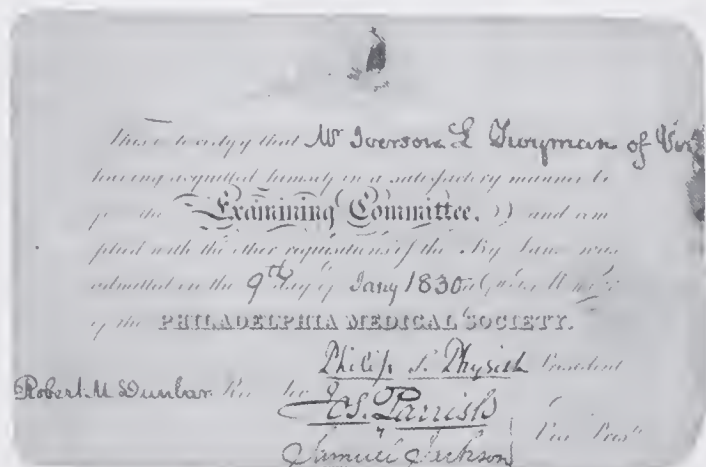 This is to certify that Mr Iverson L Twyman of Vir
having acquitted himself in a satisfactory manner be
fore the Examining Committee, and com
plied with the other requisitions of the Bye Laws was
admitted on the 9th day of Jany 1830 a Junior Member
of the PHILADELPHIA MEDICAL SOCIETY.
Philip S. Physick President
Robert M Dunbar Rec Sec
Parrish
Samuel Jackson Vice Presdt